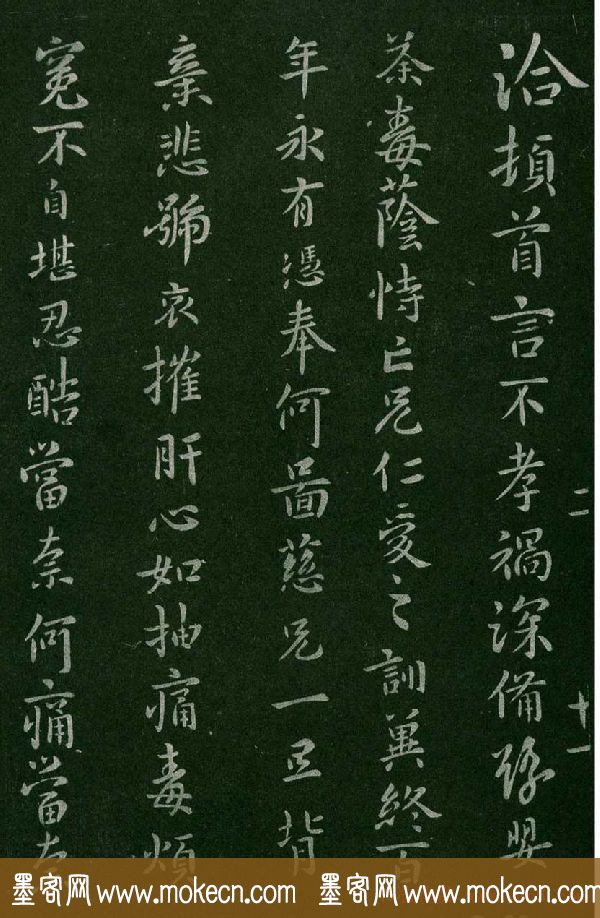 洽頓首言不孝禍深備豫嬰
荼毒蔭恃亡兄仁愛之訓冀終百
年永有憑奉何圖慈兄一旦背
棄悲號哀摧肝心如抽痛毒煩
冤不自堪忍酷當奈何痛當
二
十一
墨客网www.mokecn.com 墨客网www.mokecn.com